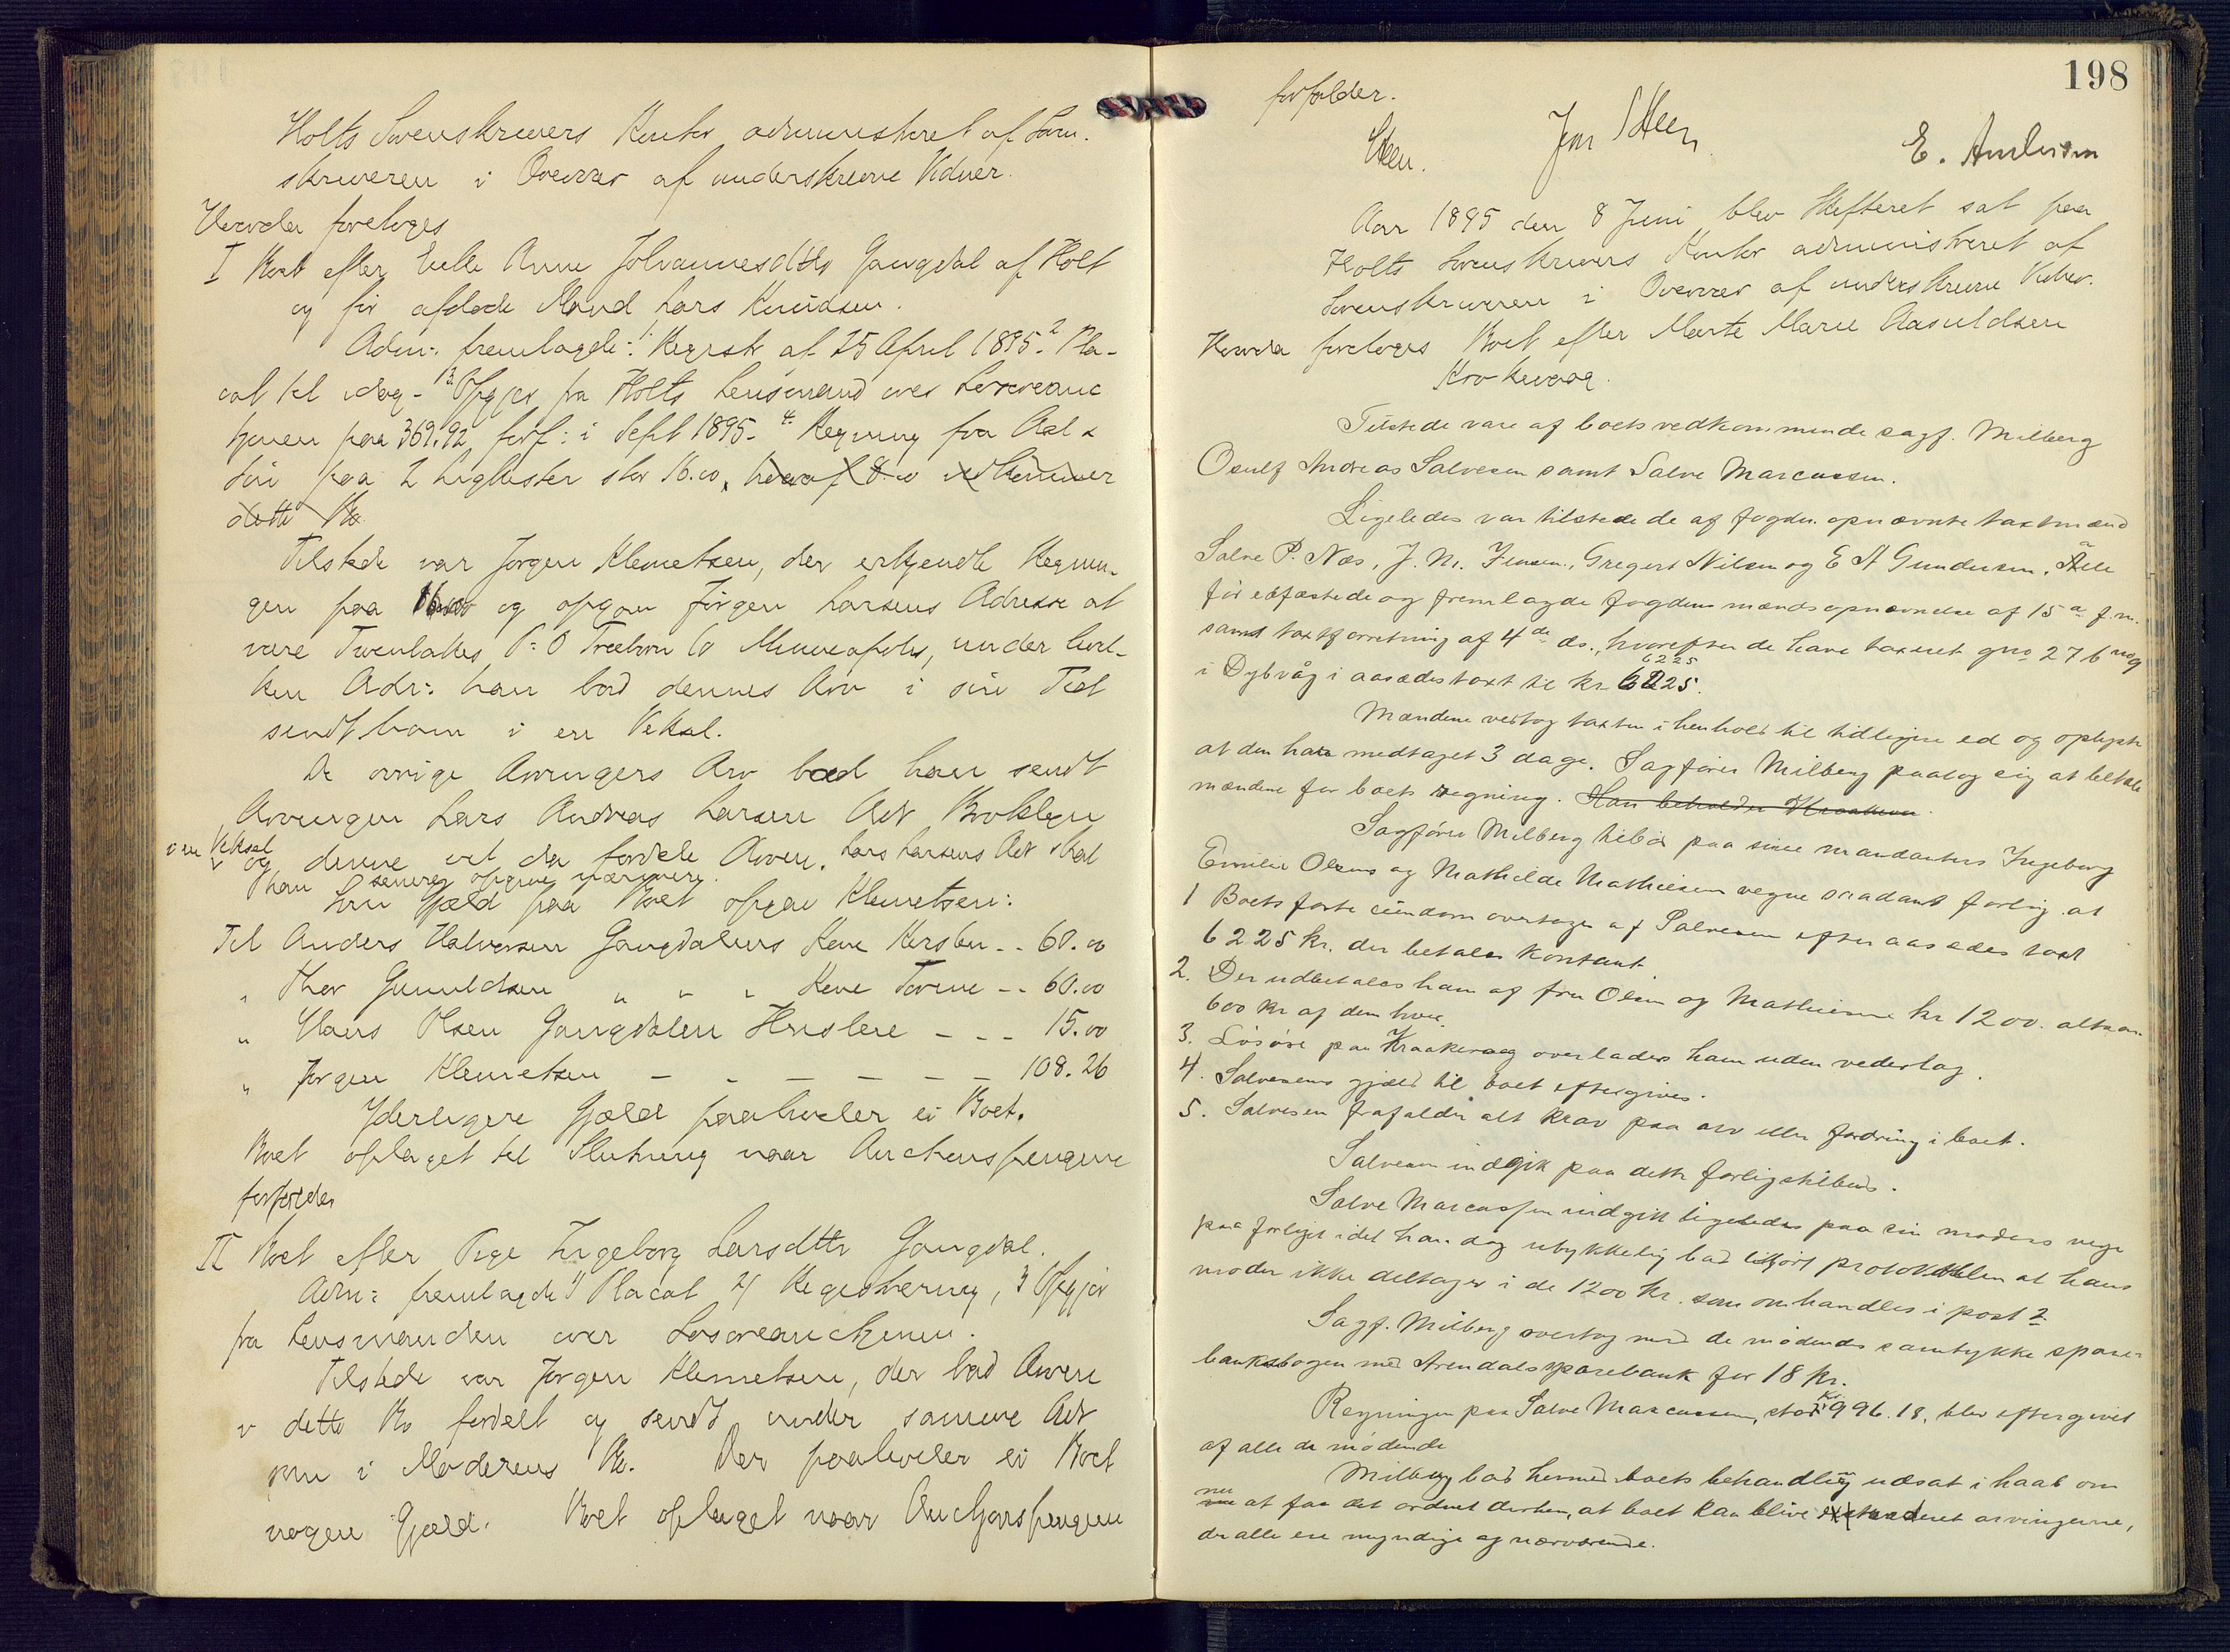 Holts Sorenskrivers Kontor administreret af Soren-
skriveren i Overvær af underskrevne Vidner.
Hvorda foretoges
I Boet efter Helle Anne Johannesdtr Gangdal af Holt
og før afdøde Mand Lars Knudsen.
Adm: fremlagde: 1. Registr. af 25 April 1895. 2 Pla-
cat til idag - 3. Opgjør fra Holts Lensmand over Løsøreauc
tjonen paa 369.92 forf: i Sept 1895. 4. Regning fra Aal &
Søn paa 2 Ligkister stor 16.00, heraf 8.00 vedkommer
dette Bo.
Tilstede var Jørgen Klemetsen, der erkjendte Regnin-
gen paa 16.00 og opgav Jørgen Larsens Adresse at
være Twinlakes P.O Freeborn Co Minneapolis, under hvil-
ken Adr: han bad dennes Arv i sin Tid
sendt ham i en Veksel.
De øvrige Arvingers Arv bad han sendt
Arvingen Lars Andreas Larsen Adr Brooklyn
i en Veksel og denne vil da fordele Arven. Lars Larsens Adr skal
han senere opgive nærmere.
Som Gjæld paa Boet opgav Klemetsen:
Til Anders Halvorsen Gangdalens Kone Kirsten -- 60.00
" Thor Gunuldsen " " " Kone Torine -- 60.00
" Hans Olsen Gangdalen Huslere - - - 15.00
" Jørgen Klemetsen - - - - - - 108.26
Yderligere Gjæld paahviler ei Boet.
Boet optaget til Slutning naar Auctionspengene
forfalder
II Boet efter Pige Ingeborg Larsdtr Gangdal.
Adm: fremlagde 1) Placat 2) Registrering, 3 Opgjør
fra Lensmanden over Løsøreauctjonen.
Tilstede var Jørgen Klemetsen, der bad Arven
i dette Bo fordelt og sendt under samme Adr
som i Moderens Bo. Der paahviler ei Boet
nogen Gjæld. Boet optaget naar Auctjonspengene
198
forfalder.
Steen. Jens Steen E. Andersen
Aar 1895 den 8 Juni blev Skifteret sat paa
Holts Sorenskrivers Kontor administreret af
Sorenskriveren i Overvær af underskrevne Vidner.
Hvorda foretoges Boet efter Marte Marie Aasuldsen
Krokevaag.
Tilstede vare af boets vedkommende sagf. Milberg
Osulf Andreas Salvesen samt Salve Marcussen.
Ligeledes var tilstede de af fogden opnævnte taxtmænd
Salve P. Næs, J. M. Jensen, Gregert Nilsen og E A Gundersen. Alle
før edfæstede og fremlagde fogdens mandsopnævnelse af 15de f.m.
samt taxtforretning af 4de ds., hvorefter de have taxeret gno 276 
i Dybvåg i aasædestaxt til kr. 6225 6225.
Mændene vedtog taxten i henhold til tidligere ed og oplyste
at den have medtaget 3 dage. Sagfører Milberg paatog sig at betale
mændene for boets regning. Han beholder Kraakevaa
Sagfører Milberg tilbød paa sine mandanters Ingeborg
Emilie Olsens og Mathilde Mathiesens vegne saadant forlig. at
1 Boets faste eiendom overtages af Salvesen efter aasædes taxt
6225 kr. der betales kontant.
2. Der udbetales ham af fru Olsen og Mathiesen kr 1200. altsaa
600 kr af dem hver.
3. Løsøre paa Kraakevaag overlades ham uden vederlag.
4. Salvesens gjæld til boet eftergives.
5. Salvesen frafalder alt krav paa arv eller fordring i boet.
Salvesen indgik paa dette forligstilbud.
Salve Marcussen indgik ligeledes paa sin moders vegne
paa forliget idet han dog udtrykkelig bad tilført protokollen at hans
moder ikke deltager i de 1200 kr. som omhandles i post 2
Sagf. Milberg overtog med de mødendes samtykke spare-
banksbogen med Arendals sparebank for 18 kr.
Regningen paa Salve Marcussen, stor kr 996.18, blev eftergivet
af alle de mødende
Milberg bad hermed boets behandling udsat i haab om
nu at faa det ordnet derhen, at boet kan blive extraderet arvingerne,
der alle ere myndige og nærværende.